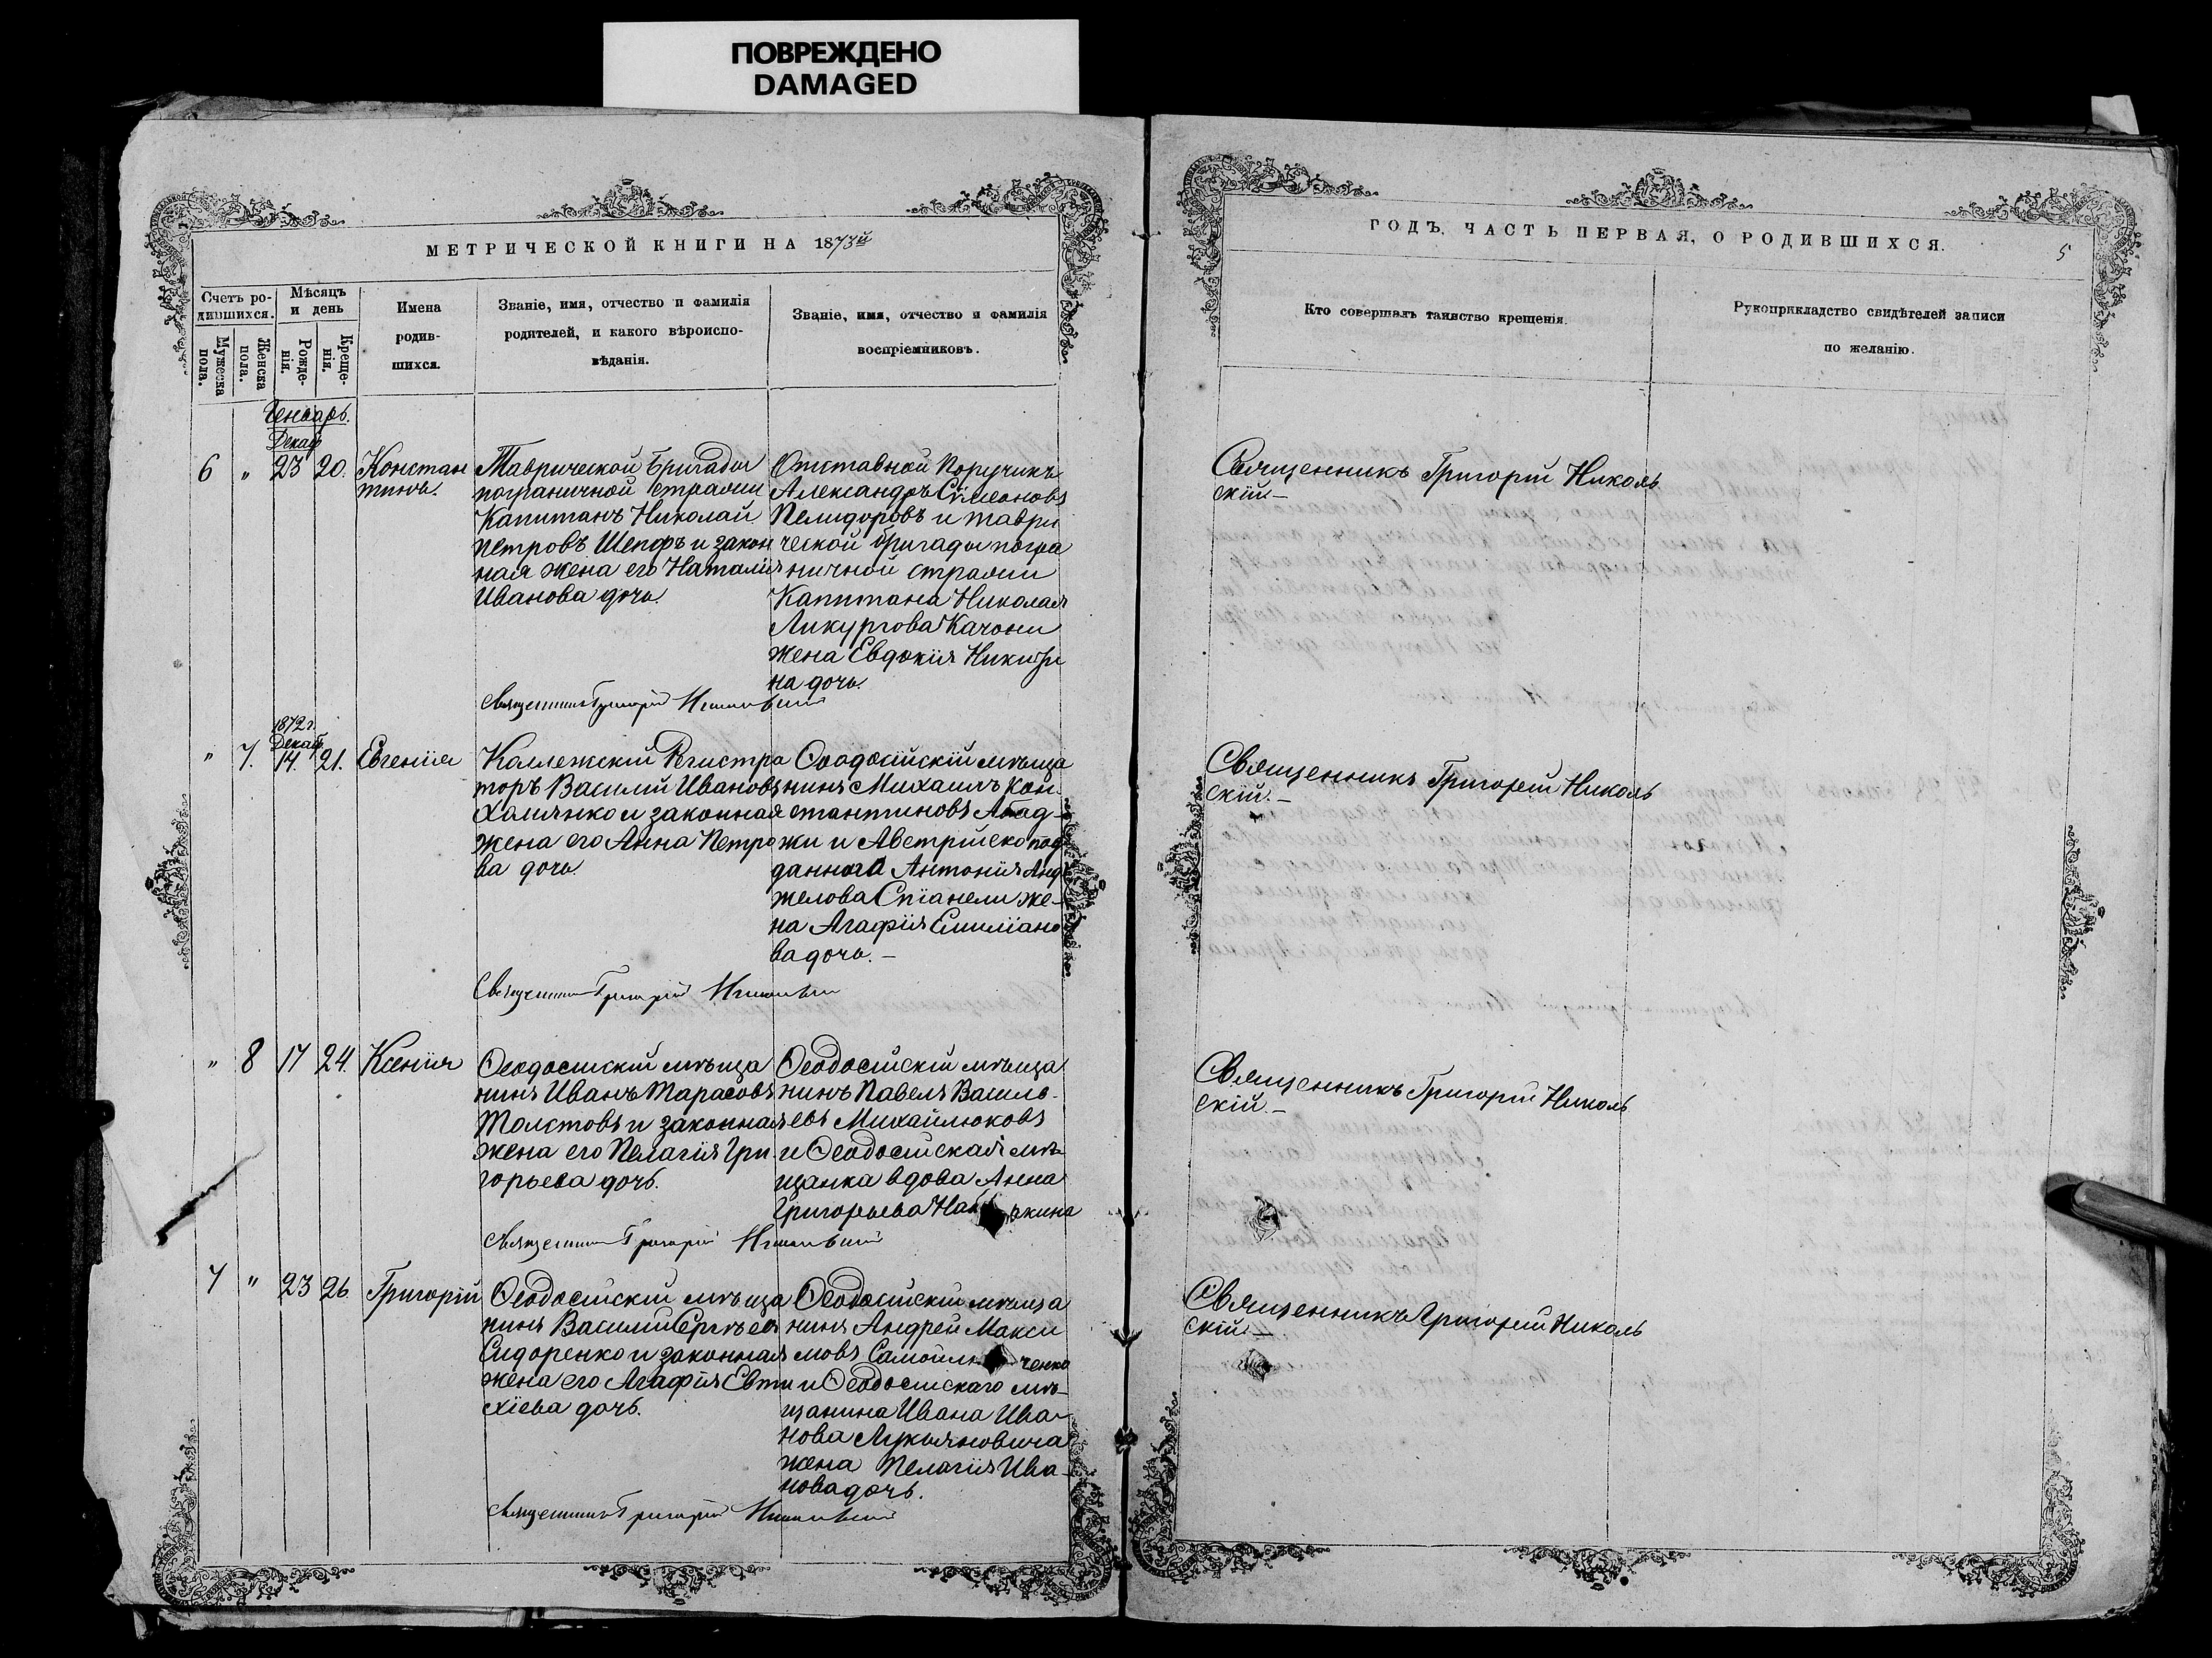 ПОВРЕЖДЕНО
DAMAGED
МЕТРИЧЕСКОЙ КНИГИ НА 1873й
Счетъ ро-
дившихся.
Мѣсяцъ
и день
Мужеска
пола.
Женска
пола.
Рожде-
нія.
Креще-
нія.
Имена
родив-
шихся.
Званіе, имя, отчество и фамилія
родителей, и какого вѣроиспо-
вѣданія.
Званіе, имя, отчество и фамилія
воспріемниковъ.
Генварь.
Декаб
6 " 23 20.
Констан
тинъ.
Таврической Бригады
пограничной стражи
Капитанъ Николай
Петровъ Шепфъ и закон
ная жена его Наталія
Иванова дочь.
Отставной Поручикъ
Александръ Сѵмеоновъ
Пелидоровъ и таври
ческой бригады погра
ничной стражи
Капитана Николая
Ликургова Качони
жена Евдокія Никити
на дочь.
Священникъ Григорій Никольскій
1872 г.
Декаб
" 7. 14. 21.
Евгенія
Коллежскій Регистра
торъ Василій Ивановъ
Халянко и законная
жена его Анна Петро
ва дочь.
Ѳеодосійскій мѣща
нинъ Михаилъ Кон-
стантиновъ Абад-
жи и Австрійско под
даннаго Антонія Анд
желова Спіанели же-
на Агафія Емиліано
ва дочь. –
Священникъ Григорій Никольскій
" 8 17 24.
Ксенія
Ѳеодосійскій мѣща
нинъ Иванъ Тарасовъ
Толстовъ и законная
жена его Пелагія Гри-
горьева дочь.
Ѳеодосійскій мѣща
нинъ Павелъ Василь-
евъ Михайлюковъ
и Ѳеодосійская мѣ-
щанка вдова Анна
Григорьева
Священникъ Григорій Никольскій
7 " 23 26.
Григорій
Ѳеодосійскій мѣща
нинъ Василій Сергѣевъ
Сидоренко и законная
жена его Агафія Евти
хіева дочь.
Ѳеодосійскій мѣща
нинъ Андрей Макси
мовъ
и Ѳеодосійскаго мѣ-
щанина Ивана Ива-
нова Лукьяновича
жена Пелагія Ива-
нова дочь.
Священникъ Григорій Никольскій
ГОДЪ, ЧАСТЬ ПЕРВАЯ, О РОДИВШИХСЯ.
5
Кто совершалъ таинство крещенія.
Рукоприкладство свидѣтелей записи
по желанію.
Священникъ Григорій Николь
скій –
Священникъ Григорій Николь
скій. –
Священникъ Григорій Николь
скій –
Священникъ Григорій Николь
скій –